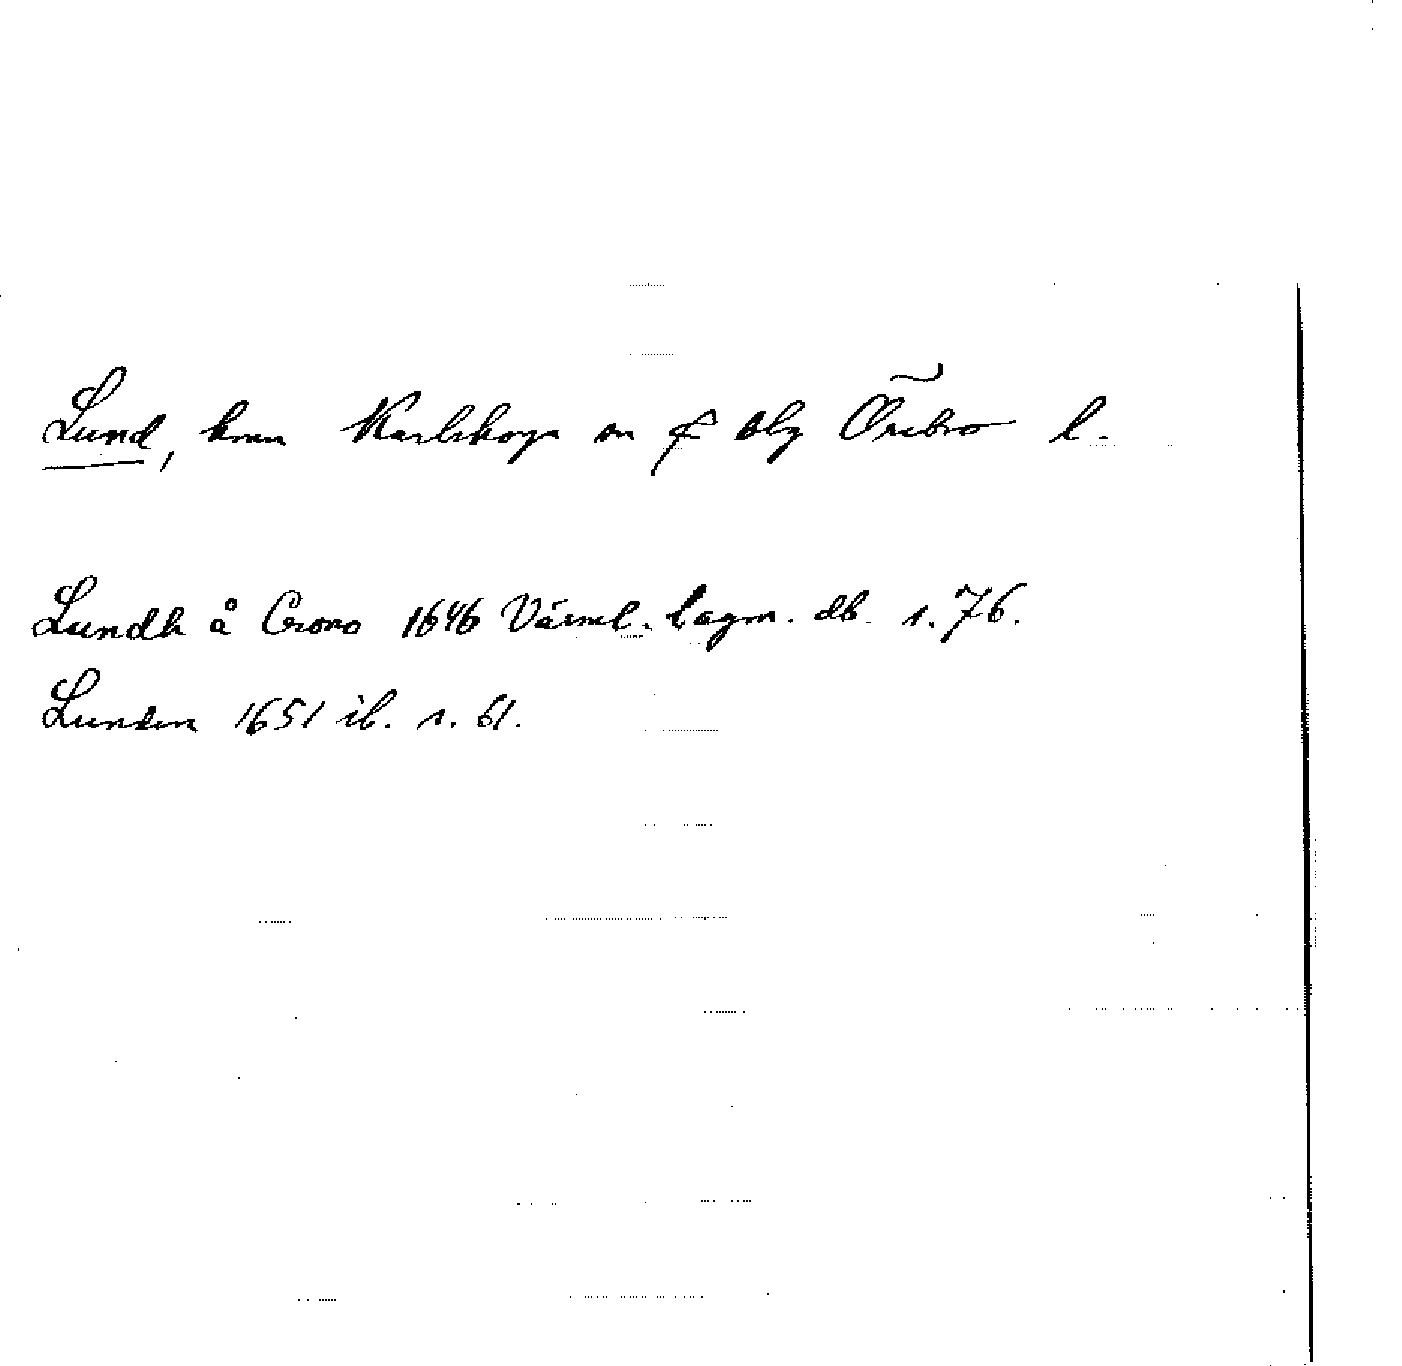 Lund, hmn Karlskoga sn o f blg Örebro l.
Lundh å Crono 1646 Värml. lagm. db. s. 76.
Lunden 1651 ib. s. 61.